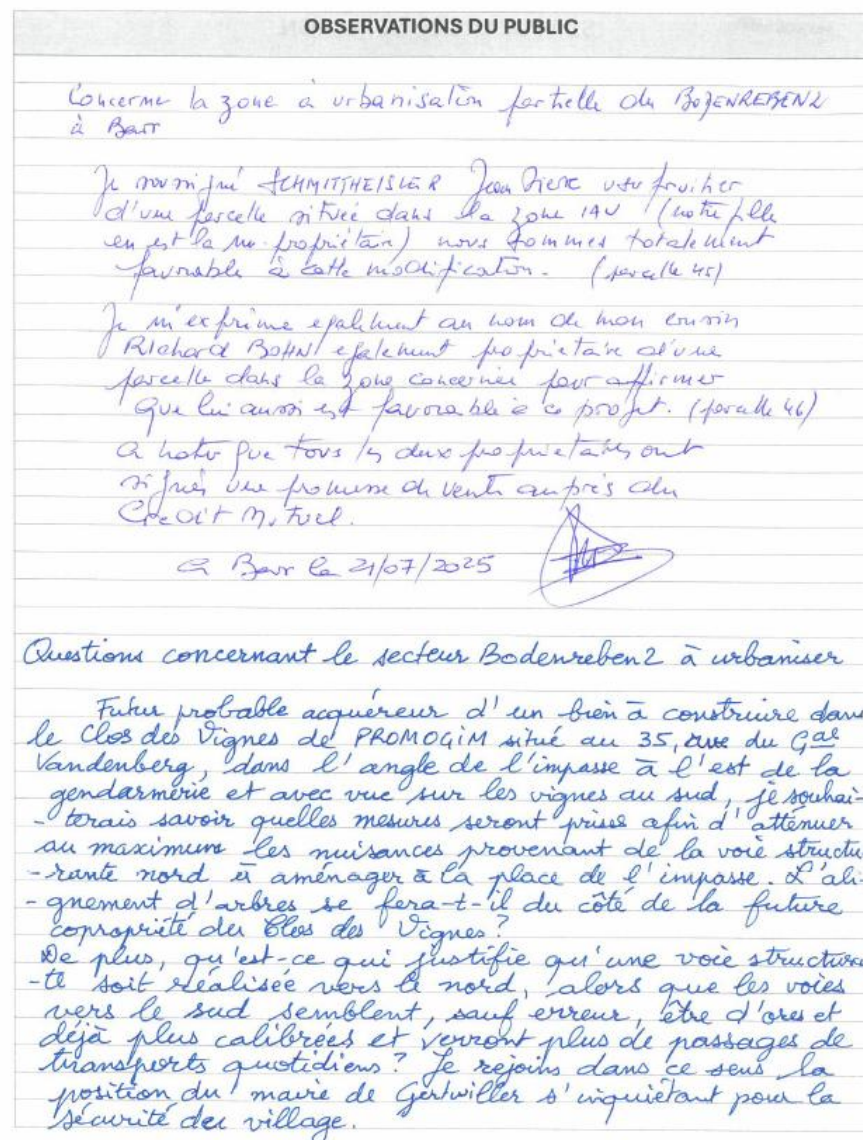 OBSERVATIONS DU PUBLIC
Concerne la zone à urbanisation partielle du BODENREBEN2
à Barr
Je soussigné SCHMITTHEISLER Jean Pierre usufruitier
d'une parcelle située dans la zone IAU (notre fille
en est la nu-propriétaire) nous sommes totalement
favorable à cette modification. (parcelle 45)
Je m'exprime egalement au nom de mon cousin
Richard BOHN egalement propriétaire d'une
parcelle dans la zone concernée pour affirmer
que lui aussi est favorable à ce projet. (parcelle 46)
A noter que tous les deux propriétaires ont
signés une promesse de vente auprès du
Crédit Mutuel.
A Barr le 21/07/2025
Questions concernant le secteur Bodenreben2 à urbaniser
Futur probable acquéreur d'un bien à construire dans
le Clos des Vignes de PROMOGIM situé au 35, ave du Gal
Vandenberg, dans l'angle de l'impasse à l'est de la
gendarmerie et avec vue sur les vignes au sud, je souhai-
-terais savoir quelles mesures seront prises afin d'atténuer
au maximum les nuisances provenant de la voie structu
-rante nord à aménager à la place de l'impasse. L'ali-
-gnement d'arbres se fera-t-il du côté de la future
copropriété du Clos des Vignes?
De plus, qu'est-ce qui justifie qu'une voie structuran
-te soit réalisée vers le nord, alors que les voies
vers le sud semblent, sauf erreur, être d'ores et
déjà plus calibrées et verront plus de passages de
transports quotidiens? Je rejoins dans ce sens la
position du maire de Gertwiller s'inquiétant pour la
sécurité du village.